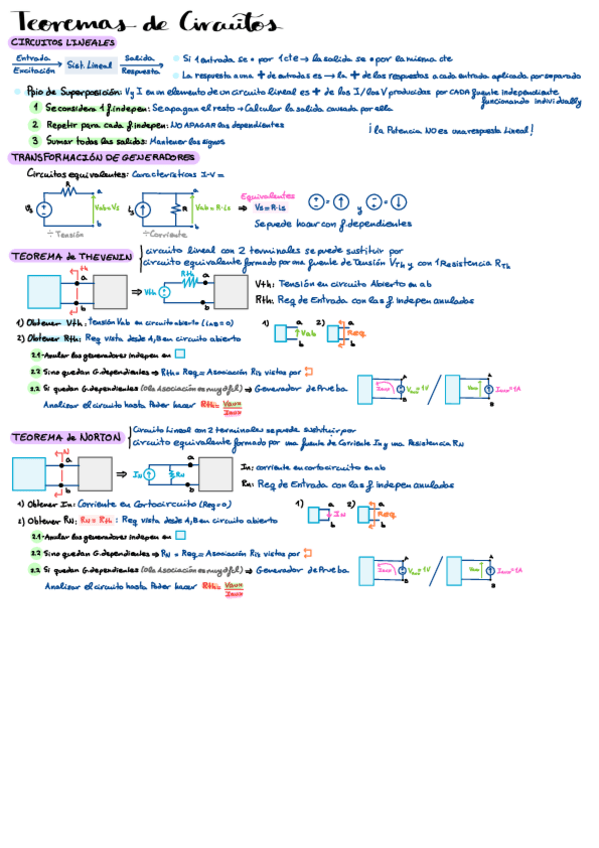 Teoremas de Circuitos
CIRCUITOS LINEALES
Entrada
Excitación
Sist. Lineal
Salida
Respuesta
Si 1 entrada se • por 1 cte → la salida se • por la misma cte
La respuesta a una + de entradas es → la + de las respuestas a cada entrada aplicada por separado
Ppio de Superposición: V y I en un elemento de un circuito lineal es + de las I/los V producidas por CADA fuente Independiente
funcionando individually
1 Se considera 1 f. indepen: Se apagan el resto → Calcular la salida causada por ella
2 Repetir para cada f. indepen: NO APAGAR las dependientes
¡ la Potencia NO es una respuesta Lineal!
3 Sumar todas las salidas: Mantener los signos
TRANSFORMACIÓN DE GENERADORES
Circuitos equivalentes: Características I-V =
R
a
Vs
Vab=Vs
b
÷ Tensión
a
is
R
Vab=R·is
b
÷ Corriente
Equivalentes
⇒ Vs=R·is
y
Se puede hacer con f. dependientes
TEOREMA de THEVENIN
circuito lineal con 2 terminales se puede sustituir por
circuito equivalente formado por una fuente de Tensión VTh y con 1 Resistencia RTh
th
a
b
⇒
Vth
Rth
a
b
Vth: Tensión en circuito Abierto en ab
Rth: Req de Entrada con las f. Indepen anuladas
1) Obtener Vth: Tensión Vab en circuito abierto (iab=0)
2) Obtener Rth: Req vista desde A,B en circuito abierto
1)
a
Vab
b
2)
a
Req
b
2.1-Anular los generadores indepen en
2.2 Si no quedan G.dependientes ⇒ Rth = Req = Asociación Ris vistas por
2.3 Si quedan G.dependientes (o la Asociación es muy dfcl) ⇒ Generador de Prueba
Analizar el circuito hasta Poder hacer Rth = Vaux/Iaux
Iaux
A
Vaux=1V
B
/
Vaux
A
Iaux=1A
B
TEOREMA de NORTON
Circuito Lineal con 2 terminales se puede sustituir por
circuito equivalente formado por una fuente de Corriente IN y una Resistencia RN
N
a
b
⇒
IN
RN
a
b
IN: corriente en cortocircuito en ab
RN: Req de Entrada con las f. Indepen anuladas
1) Obtener IN: Corriente en Cortocircuito (Req=0)
2) Obtener RN: RN = RTH : Req vista desde A,B en circuito abierto
1)
a
IN
b
2)
a
Req
b
2.1-Anular los generadores indepen en
2.2 Si no quedan G.dependientes ⇒ RN = Req = Asociación Ris vistas por
2.2 Si quedan G.dependientes (o la Asociación es muy dfcl) ⇒ Generador de Prueba
Analizar el circuito hasta Poder hacer Rth = Vaux/Iaux
Iaux
A
Vaux=1V
B
/
Vaux
A
Iaux=1A
B